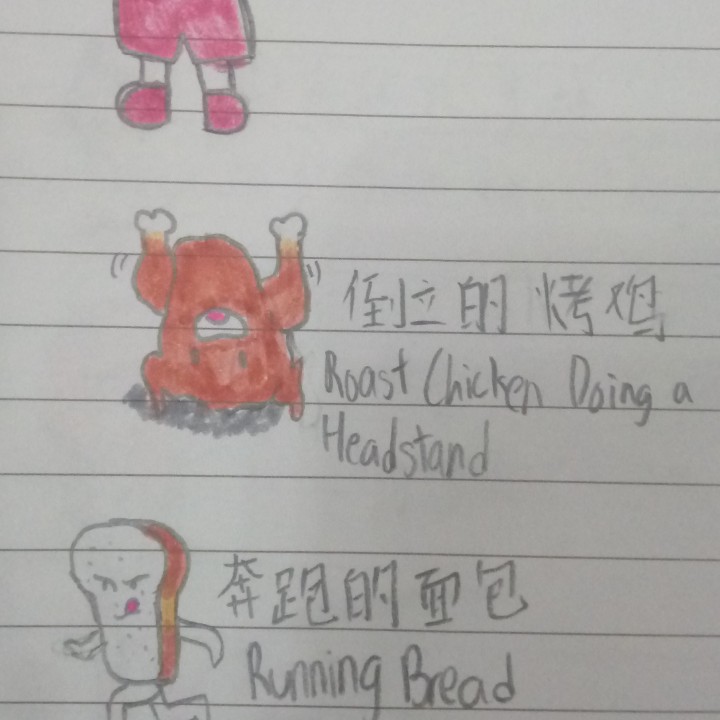 倒立的烤鸡
Roast Chicken Doing a
Headstand
奔跑的面包
Running Bread